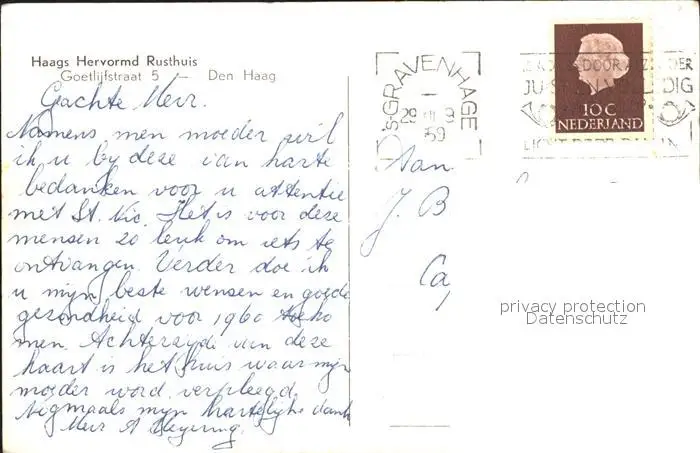 Haags Hervormd Rusthuis
Goetlijfstraat 5 — Den Haag
Geachte Mevr.
Namens men moeder wil
ik u by deze van harte
bedanken voor u attentie
met St. Nic. Het is voor deze
mensen zo leuk om iets te
ontvangen. Verder doe ik
u mijn beste wensen en goede
gezondheid voor 1960 toeko
men. Achterzyde van deze
kaart is het huis waar mijn
moeder word verpleegd.
Nogmaals mijn hartelijke dank
Mevr A Meyering.
's-GRAVENHAGE
29 XII 9
1959
10C
NEDERLAND
Aan
J. B
Ca
privacy protection
Datenschutz